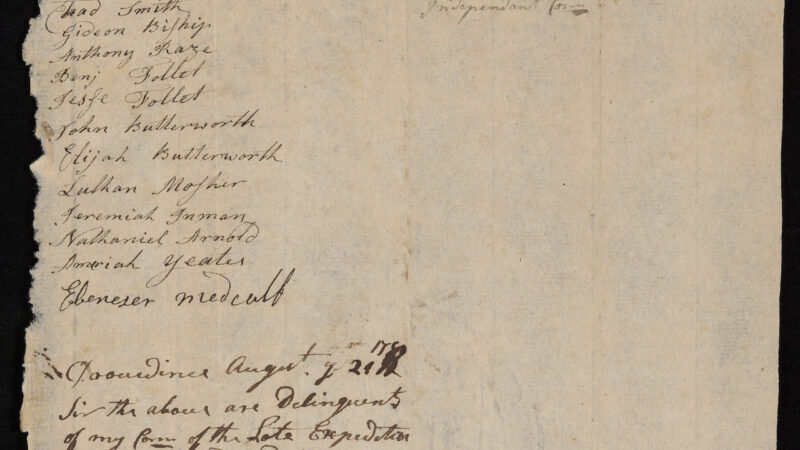 Smith
Gideon Biship
Anthony Raze
Benj Follet
Jesse Follet
John Butterworth
Elijah Butterworth
Luthan Mosher
Jeremiah Inman
Nathaniel Arnold
Amariah Yeates
Ebenezer medcalf
Independant Com
Providince August ye 21
Sir the above are Delinquents
of my Com of the Late Expedition